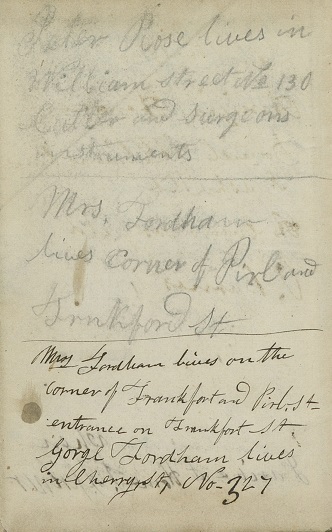 Peter Rose lives in
William street No 130
Cutler and Surgeons
instruments
Mrs. Fordham
lives corner of Pirl and
Frnkford St.
Mrs Fordham lives on the
corner of Frankfort and Pirl. St
entrance on Frankfort St.
Gorge Fordham lives
in Cherry st, No- 327